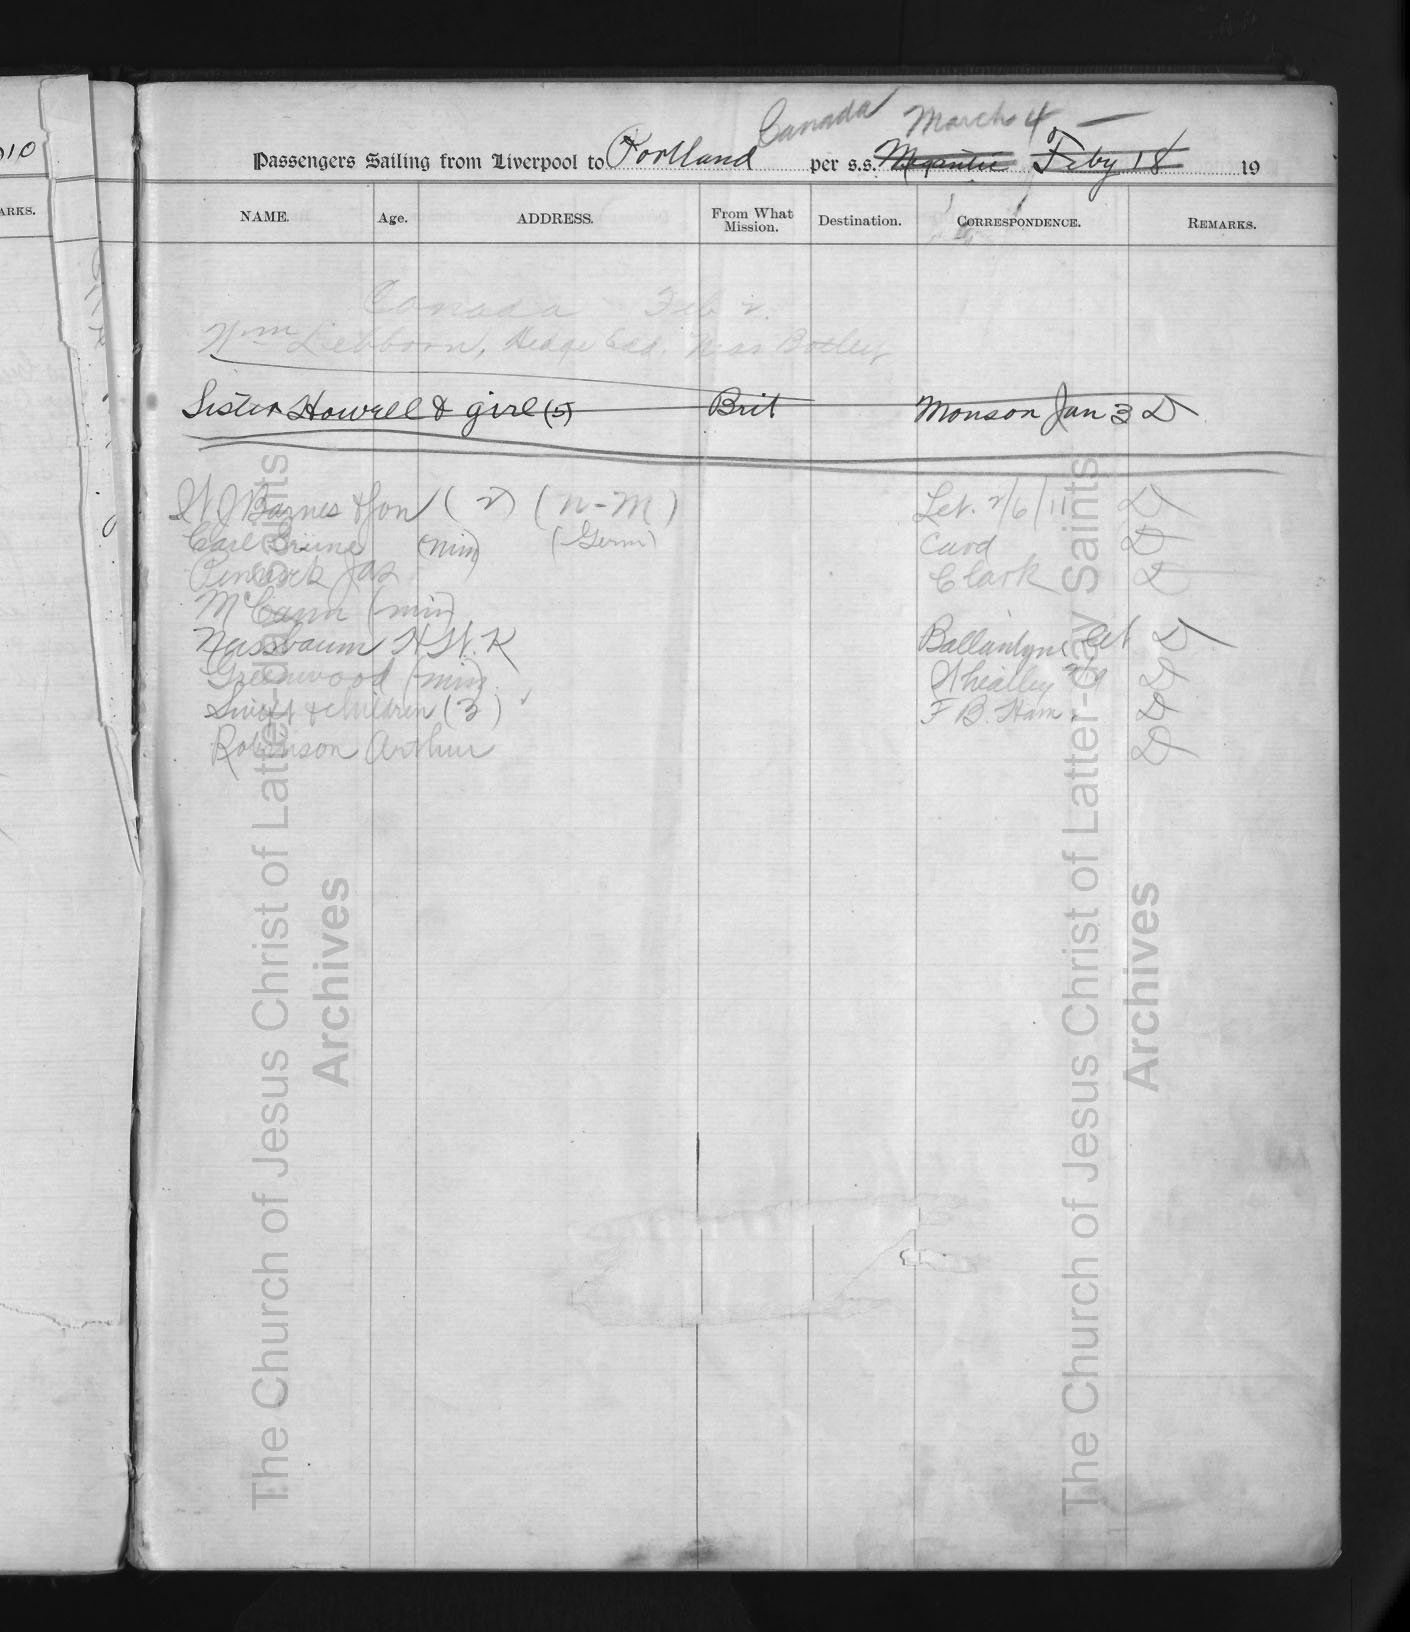 010
Canada March 4 —
Passengers Sailing from Liverpool to Portland per s.s. Megantic Feby 18 19
ARKS.
NAME. Age. ADDRESS. From What Mission. Destination. CORRESPONDENCE. REMARKS.
Canada Feb
Wm Hedge End, Near Botley
Sister Howell & girl (5) Brit Monson Jan 3 D
W J Barnes & son (2) (N-M) Let. 2/6/11 D
Carl (min) (Germ) Card D
Jas Clark D
McCann (min)
Nassbaum H W. K Ballantyne Let D
Greenwood (min) Wheatley D
& children (3) F B. Ham D
Robinson Arthur D
The Church of Jesus Christ of Latter-day Saints
Archives
The Church of Jesus Christ of Latter-day Saints
Archives